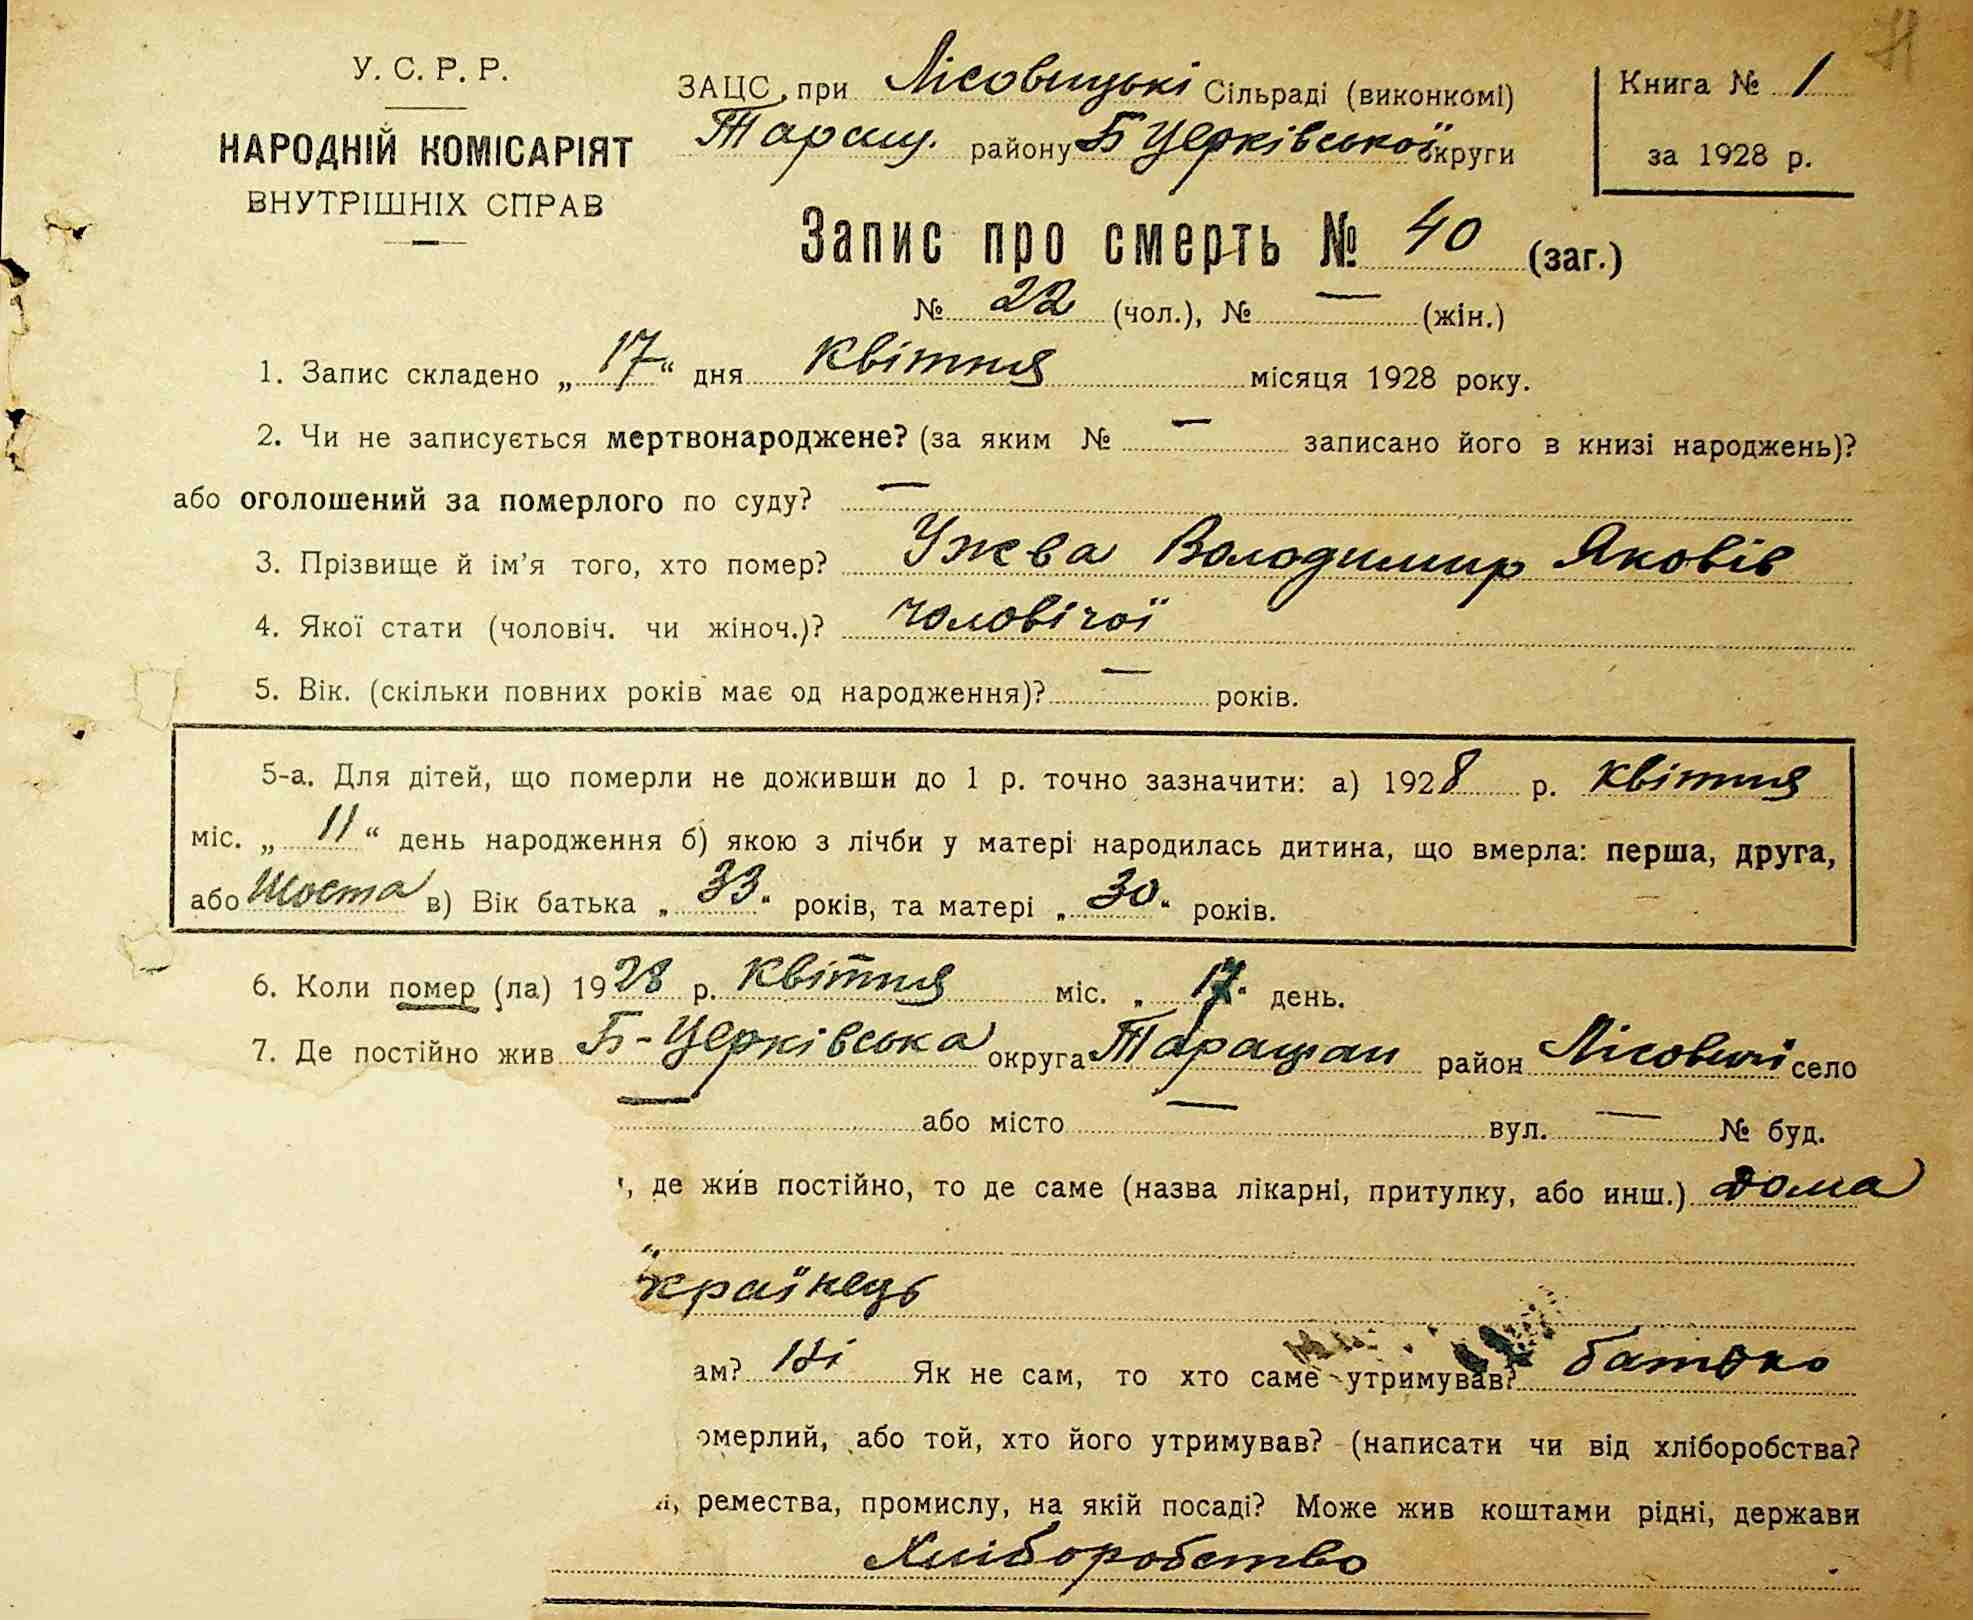 У. С. Р. Р.
НАРОДНІЙ КОМІСАРІЯТ
ВНУТРІШНІХ СПРАВ
ЗАЦС при Лісовицькі Сільраді (виконкомі)
Таращ. району Б Церківської округи
Книга № 1
за 1928 р.
Запис про смерть № 40 (заг.)
№ 22 (чол.), № — (жін.)
1. Запис складено „ 17 “ дня квітня місяця 1928 року.
2. Чи не записується мертвонароджене? (за яким № — записано його в книзі народжень)?
або оголошений за померлого по суду? —
3. Прізвище й ім’я того, хто помер? Ужва Володимир Яковів
4. Якої стати (чоловіч. чи жіноч.)? чоловічої
5. Вік. (скільки повних років має од народження)? — років.
5-а. Для дітей, що померли не доживши до 1 р. точно зазначити: а) 1928 р. квітня
міс. „ 11 “ день народження б) якою з лічби у матері народилась дитина, що вмерла: перша, друга,
або Шоста в) Вік батька „ 33 “ років, та матері „ 30 “ років.
6. Коли помер (ла) 1928 р. квітня міс. „ 17 “ день.
7. Де постійно жив Б-Церківська округа Таращан район Лісовичі село
— або місто — вул. — № буд.
, де жив постійно, то де саме (назва лікарні, притулку, або инш.) дома
країнець
ам? Ні Як не сам, то хто саме утримував? батько
омерлий, або той, хто його утримував? (написати чи від хліборобства?
, ремества, промислу, на якій посаді? Може жив коштами рідні, держави
Хліборобство